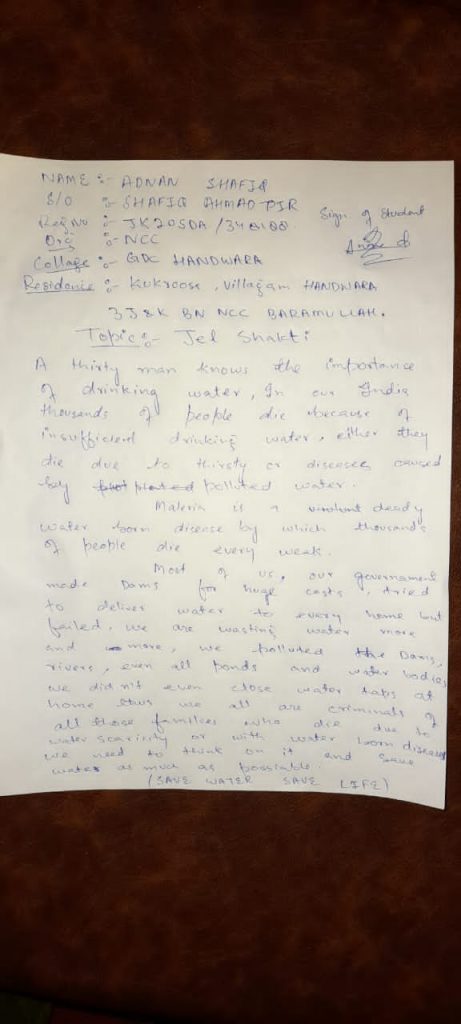 NAME :- ADNAN SHAFIQ
S/O :- SHAFIQ AHMAD PIR
Reg No :- JK20SDA / Sign. of Student
Org :- NCC
Collage :- GDC HANDWARA
Residence :- Kukroosa, Villagam HANDWARA
3 J&K BN NCC BARAMULLAH.
Topic :- Jel Shakti
A thirty man knows the importance
of drinking water, In our India
thousands of people die because of
insufficient drinking water, either they
die due to thirsty or diseases caused
by polluted water.
Maleria is a deady
water born disease by which thousands
of people die every weak.
Most of us, our governament
made Dams for huge costs, tried
to deliver water to every home but
failed. we are wasting water more
and more, we polluted the Dams,
rivers, even all ponds and water bodies
we did n't even close water taps at
home thus we all are criminals of
all those families who die due to
water scarcity or with water born diseases
we need to think on it and save
water as much as possiable.
(SAVE WATER SAVE LIFE)